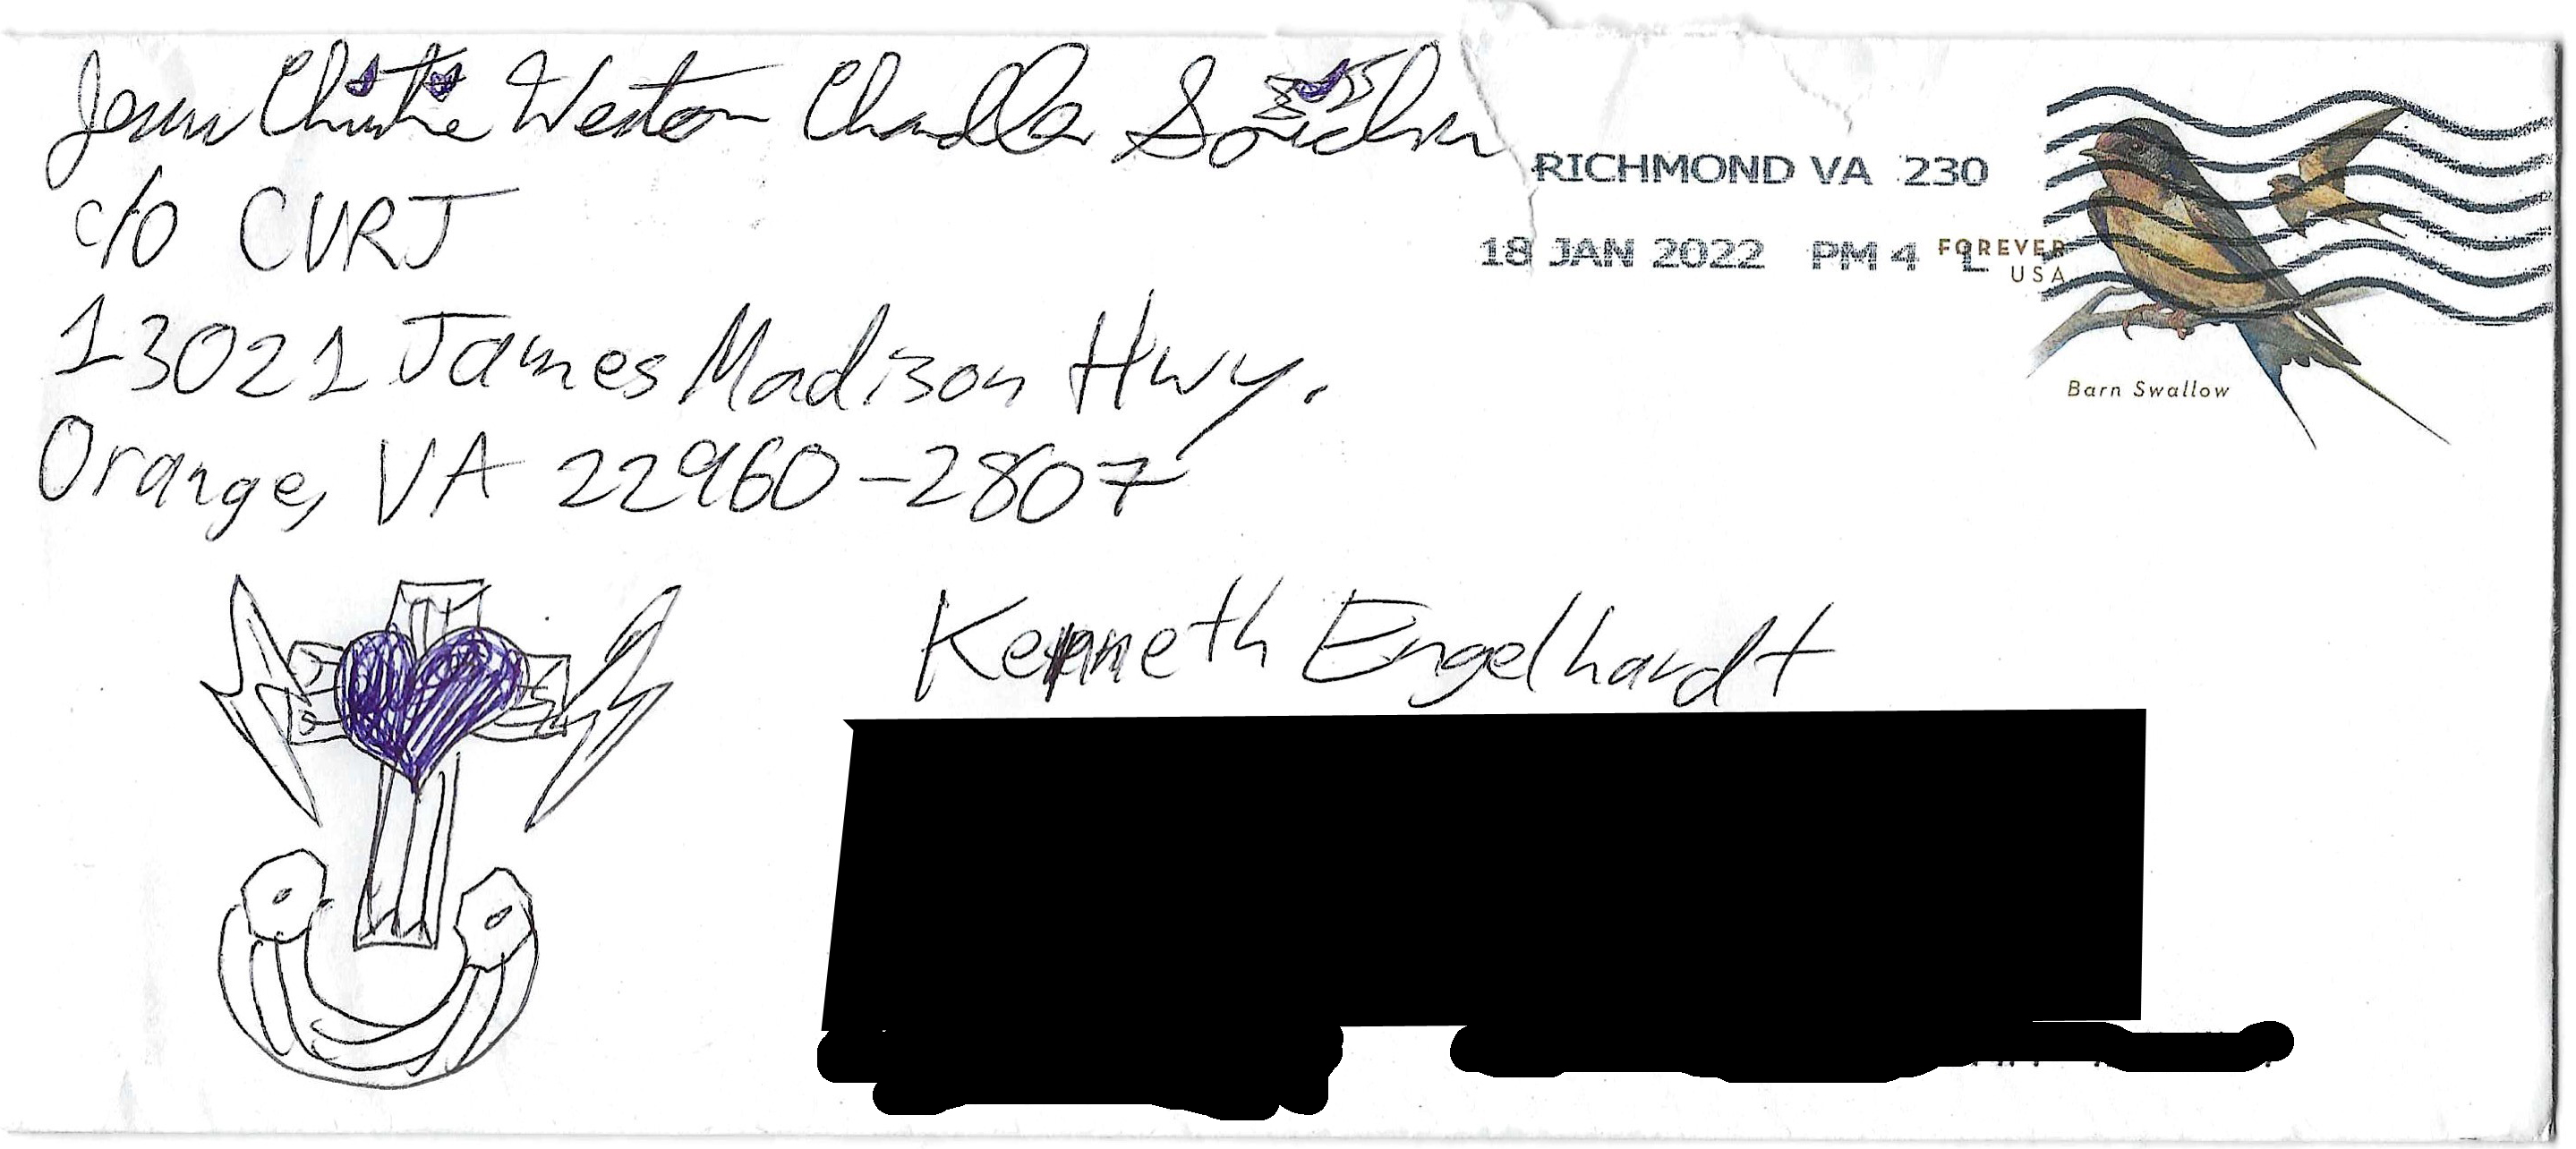 Jesus Christine Weston Chandler Sonichu
c/o CVRJ
13021 James Madison Hwy.
Orange, VA 22960-2807
RICHMOND VA 230
18 JAN 2022 PM 4 L
FOREVER
USA
Barn Swallow
Kenneth Engelhardt